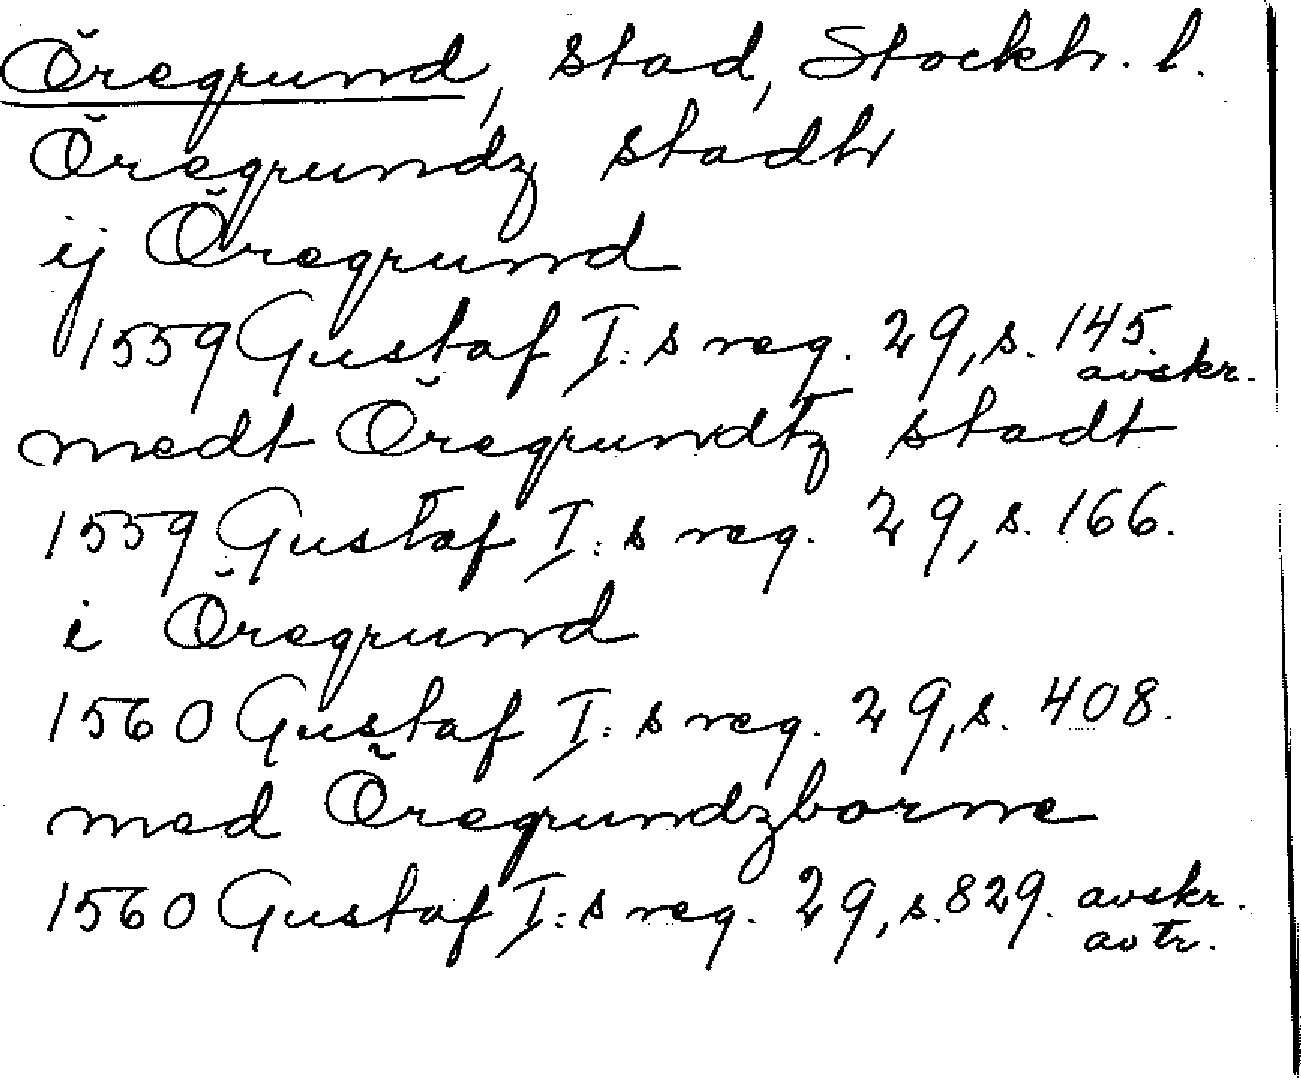 Öregrund, stad, Stockh. l.
Öregrundz stadh
ij Öregrund
1559 Gustaf I:s reg. 29, s. 145. avskr.
medt Öregrundtz stadt
1559 Gustaf I:s reg. 29, s. 166.
i Öregrund
1560 Gustaf I:s reg. 29, s. 408.
med Öregrundzborne
1560 Gustaf I:s reg. 29, s. 829. avskr.
av tr.